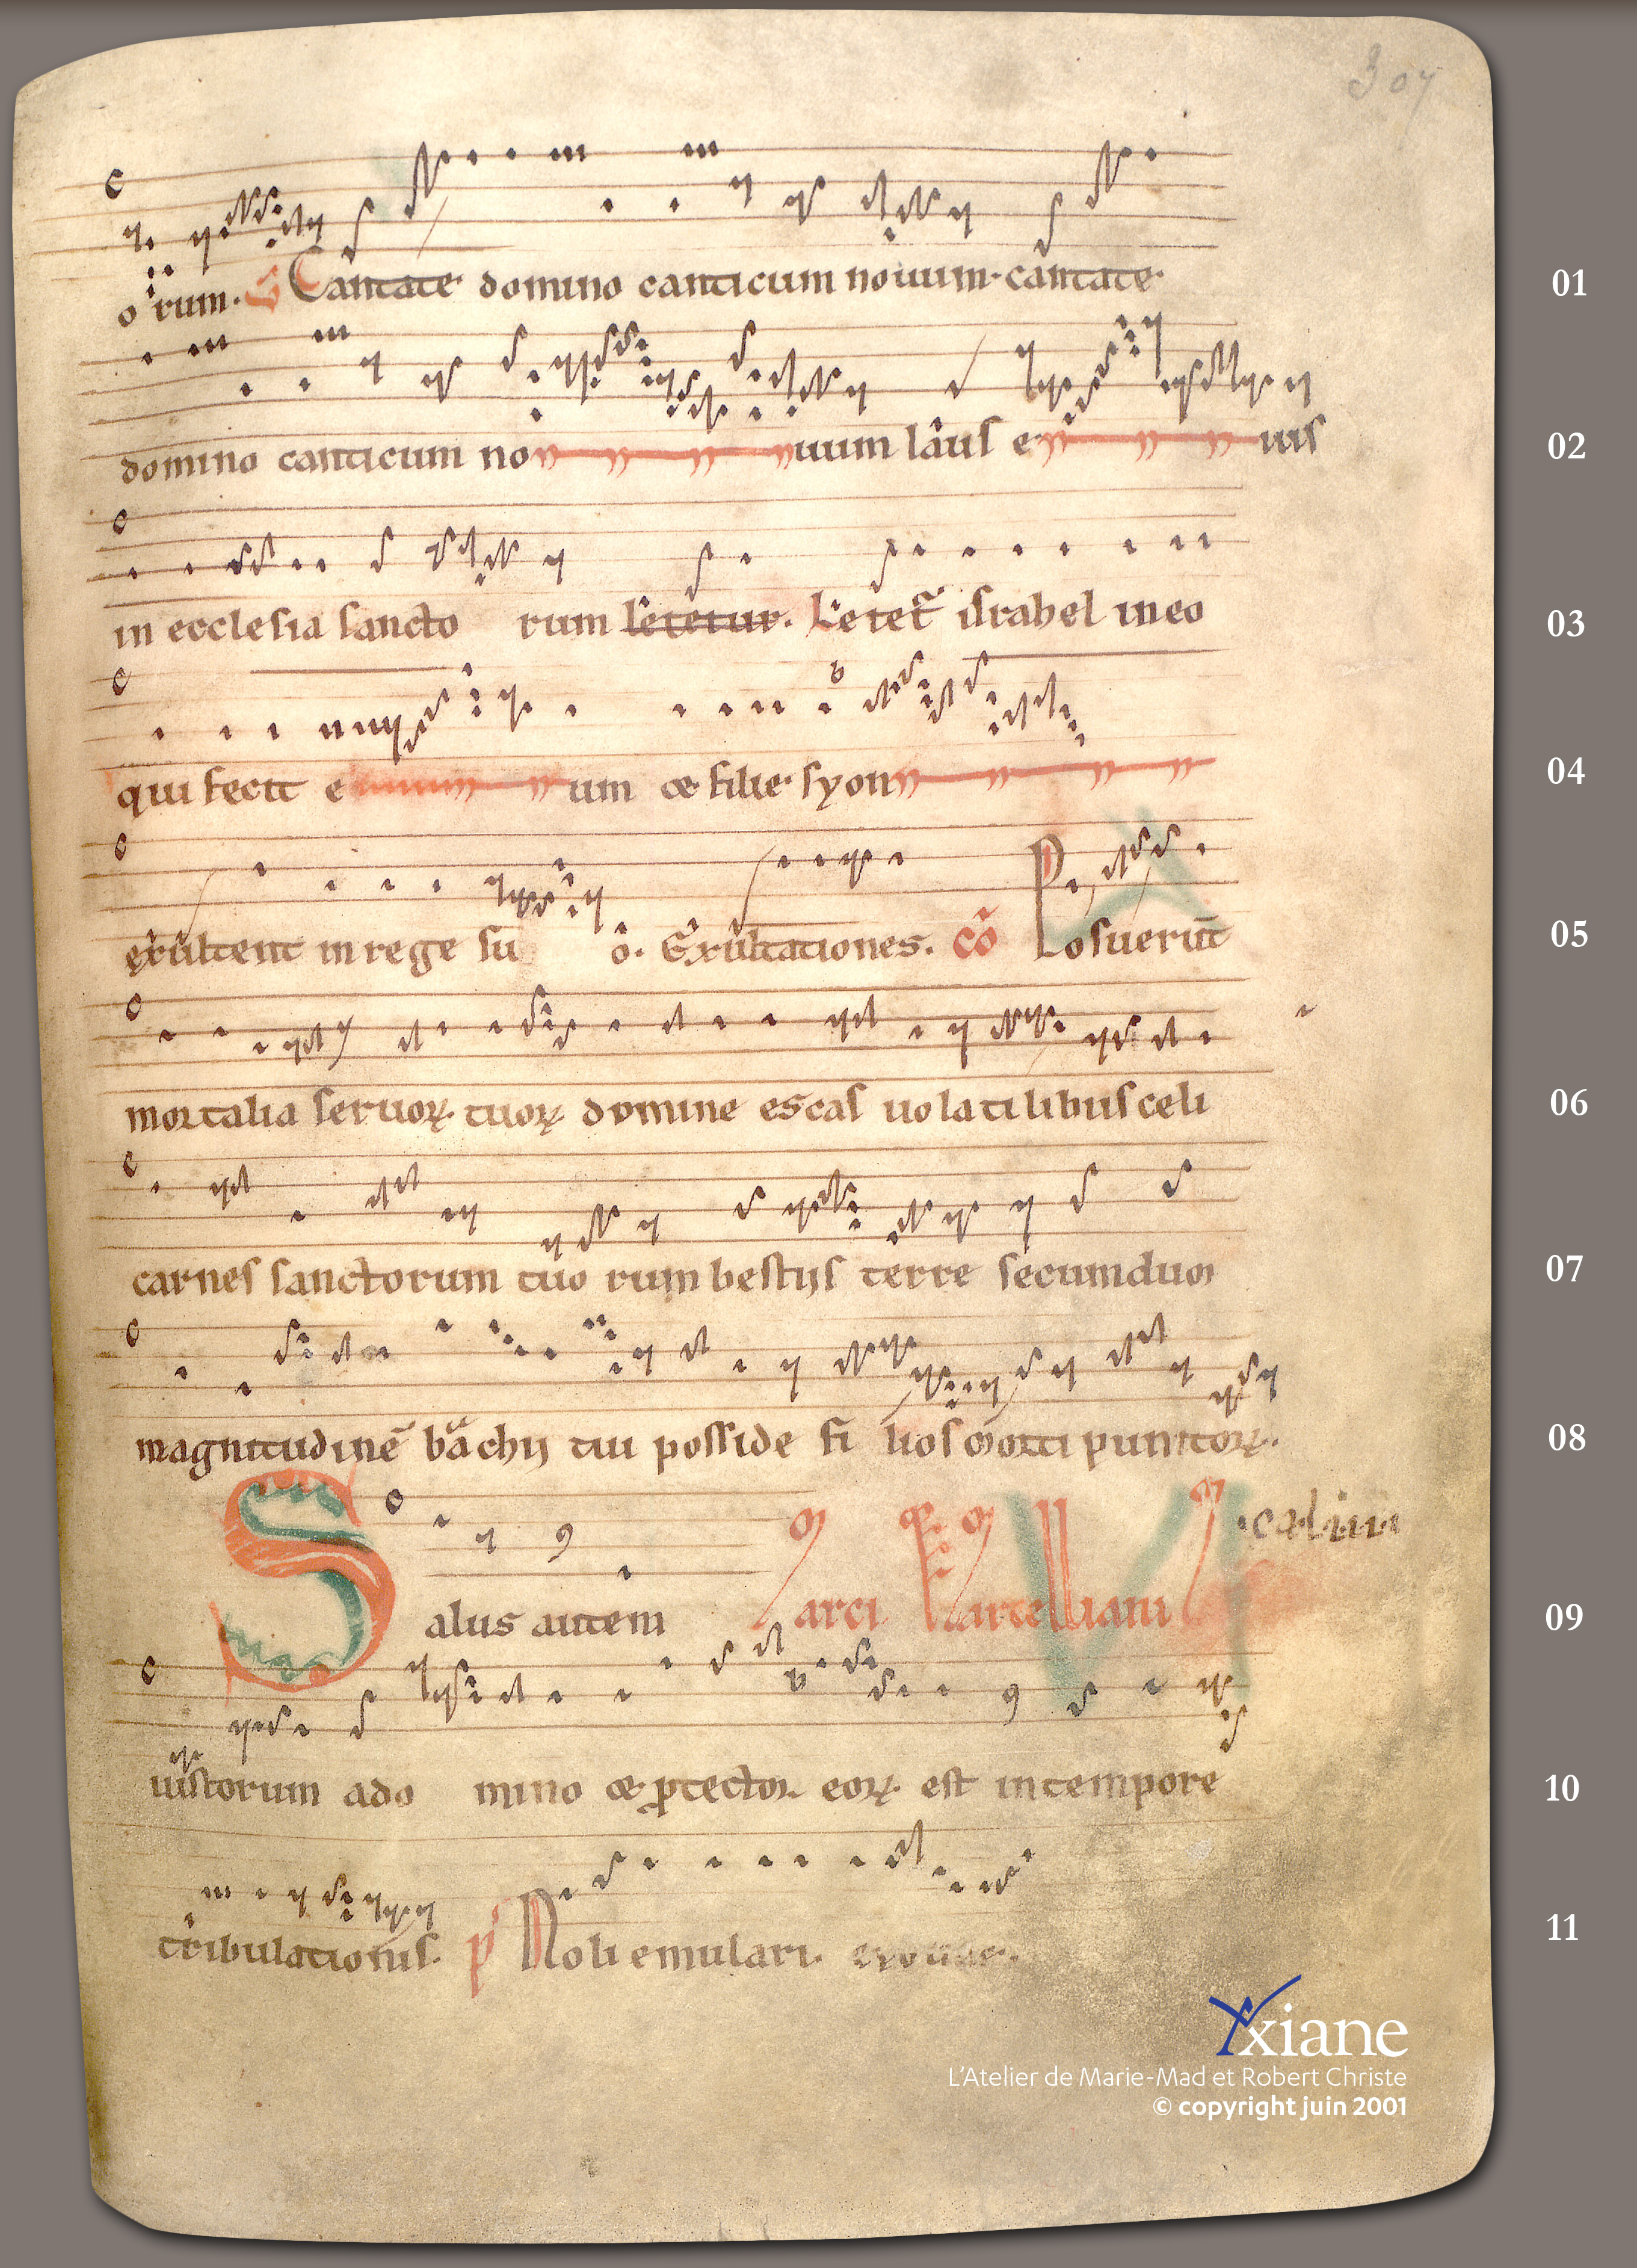 307
orum. Cantate domino canticum nouum. cantate. 01
domino canticum nouum laus eius 02
in ecclesia sanctorum letetur. Letet᷑ israhel in eo 03
qui fecit eum & filie syon 04
exultent in rege suo. Exultationes. cō Posuerūt 05
mortalia seruoꝝ tuoꝝ domine escas uolatilibus celi 06
carnes sanctorum tuorum bestiis terre secundum 07
magnitudinē bachii tui posside filios morti punitoꝝ. 08
Salus autem Marci Marcelliani 09
iustorum a domino & ꝓtector eoꝝ est in tempore 10
tribulationis. p̄ Noli emulari. 11
Yxiane
L'Atelier de Marie-Mad et Robert Christe
© copyright juin 2001